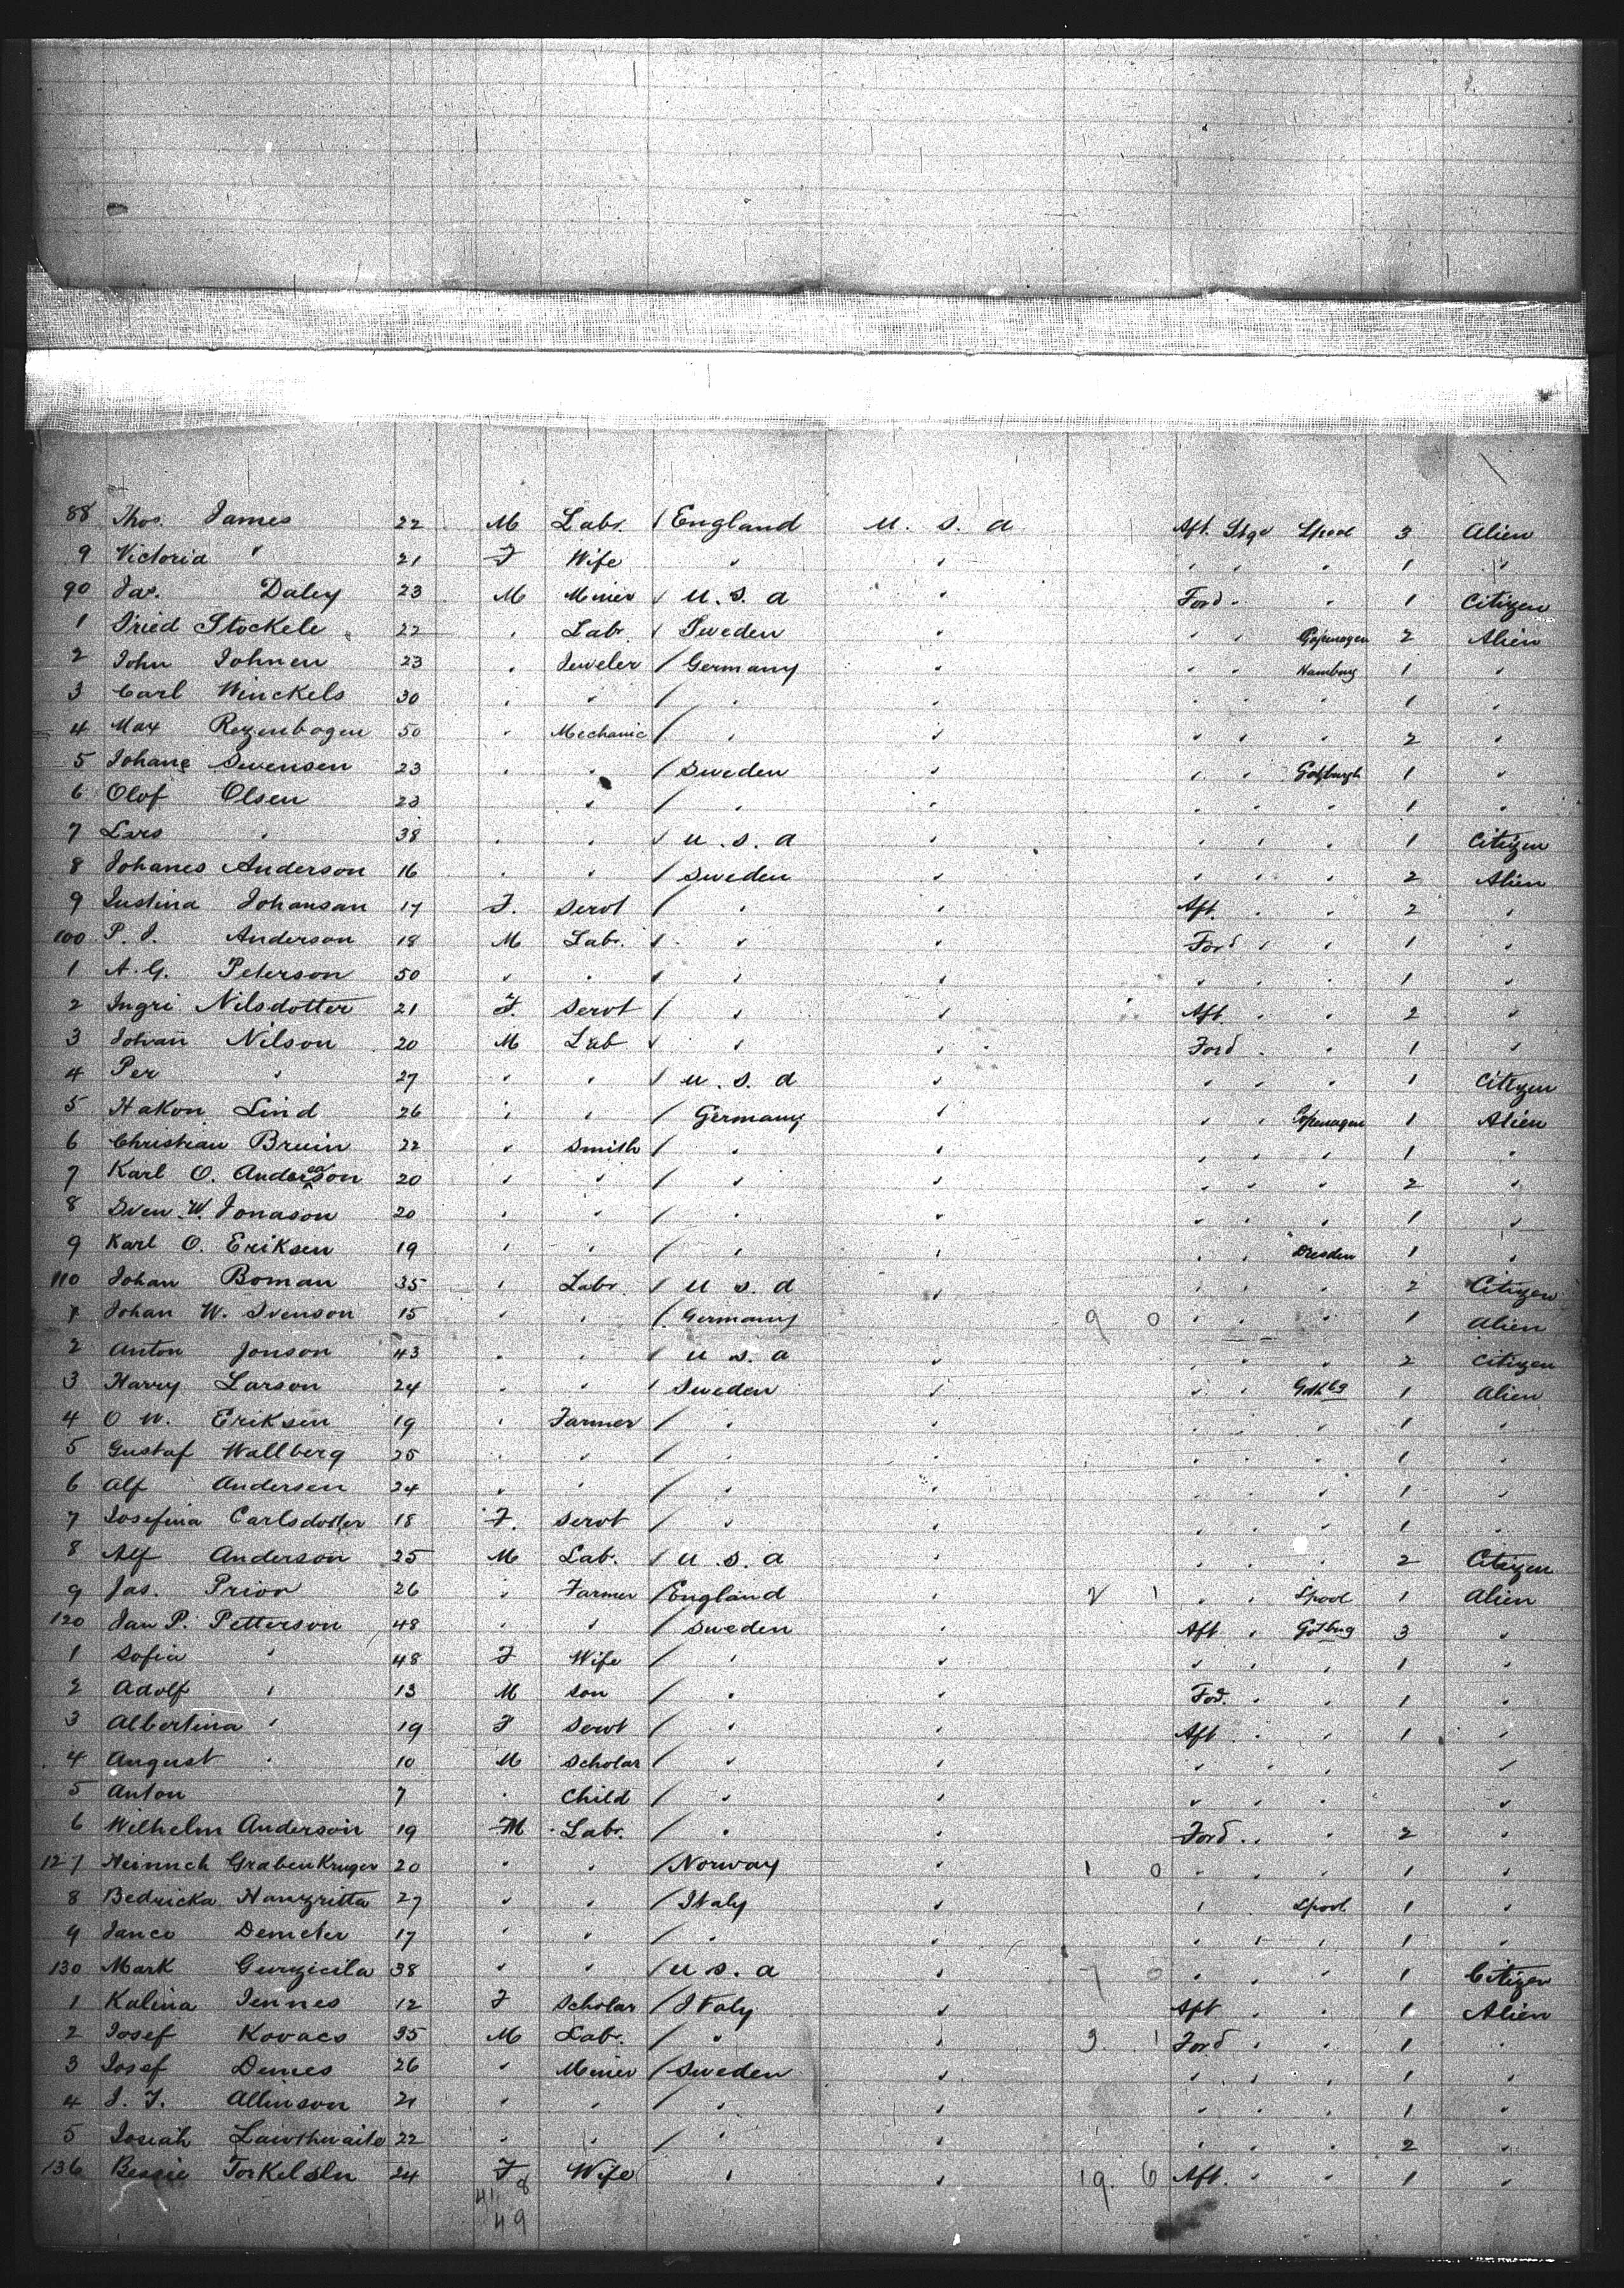 88 Thos. James 22 M Labr. / England U. S. A Aft. Stge Lpool 3 Alien
9 Victoria " 21 F Wife " " " " " 1 "
90 Jas. Daley 23 M Miner / U. S. A " Ford " " 1 Citizen
1 Fried Stockele 22 " Labr. / Sweden " " " Copenagen 2 Alien
2 John Johnen 23 " Jeweler / Germany " " " Hamburg 1 "
3 Carl Winckels 30 " " / " " " " " 1 "
4 Max Regenbogen 50 " Mechanic / " " " " " 2 "
5 Johane Swensen 23 " " / Sweden " " " 1 "
6 Olof Olsen 23 " " / " " " " " 1 "
7 Lars " 38 " " / U. S. A " " " " 1 Citizen
8 Johanes Anderson 16 " " / Sweden " " " " 2 Alien
9 Justina Johansan 17 F. Servt / " " Aft. " " 2 "
100 P. J. Anderson 18 M Labr. / " " Ford " " 1 "
1 A. G. Peterson 50 " " / " " " " " 1 "
2 Ingri Nilsdotter 21 F. Servt / " " Aft. " " 2 "
3 Johan Nilson 20 M Lab / " " Ford " " 1 "
4 Per " 27 " " / U. S. A " " " " 1 Citizen
5 Hakon Lind 26 " " / Germany " " " Copenagen 1 Alien
6 Christian Bruin 22 " Smith / " " " " " 1 "
7 Karl O. Anderson 20 " " / " " " " " 2 "
8 Sven W. Jonason 20 " " / " " " " " 1 "
9 Karl O. Eriksen 19 " " / " " " " Dresden 1 "
110 Johan Boman 35 " Labr. / U S A " " " " 2 Citizen
1 Johan W. Svenson 15 " " / Germany 9 0 " " " 1 Alien
2 Anton Jonson 43 " " / U S. A " " " " 2 Citizen
3 Harry Larson 24 " " / Sweden " " " Gothbg 1 Alien
4 O W. Eriksen 19 " Farmer / " " " " " 1 "
5 Gustaf Wallberg 25 " " / " " " " " 1 "
6 Alf Andersen 24 " " / " " " " " 1 "
7 Josefina Carlsdotter 18 F. Servt / " " " " " 1 "
8 Alf Anderson 25 M Lab. / U. S. A " " " " 2 Citizen
9 Jas. Prior 26 " Farmer / England " 2 1 " " Lpool 1 Alien
120 Jan P. Petterson 48 " " / Sweden " Aft " Gotbug 3 "
1 Sofia " 48 F Wife / " " " " " 1 "
2 Adolf " 13 M Son / " " Fod. " " 1 "
3 Albertina " 19 F Servt / " " Aft " " 1 "
4 August " 10 M Scholar / " " " " " "
5 Anton 7 " Child / " " " " " "
6 Wilhelm Anderson 19 M Labr. / " " Ford " " 2 "
127 Heinrich GrabenKruger 20 " " / Norway " 1 0 " " " 1 "
8 Bedricka Hangritta 27 " " / Italy " " " Lpool. 1 "
9 Janco Demeter 17 " " / " " " " " 1 "
130 Mark 38 " " / U S. A " 7 0 " " " 1 Citizen
1 Kalina Jennes 12 F Scholar / Italy " Aft " " 1 Alien
2 Josef Kovacs 35 M Labr. / " " 3 1 Ford " " 1 "
3 Josef Denies 26 " Miner / Sweden " " " " 1 "
4 J. T. Allinson 21 " " / " " " " " 1 "
5 Josiah Lawthwaite 22 " " / " " " " " 2 "
136 Bessie Torkelsln 24 F Wife " " 19. 6 Aft. " " 1 "
41 8
49